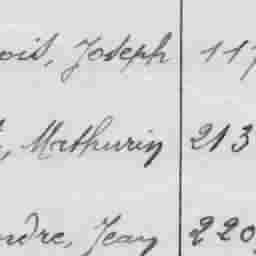 oit, Joseph 117
, Mathurin 213
ndre, Jean 220